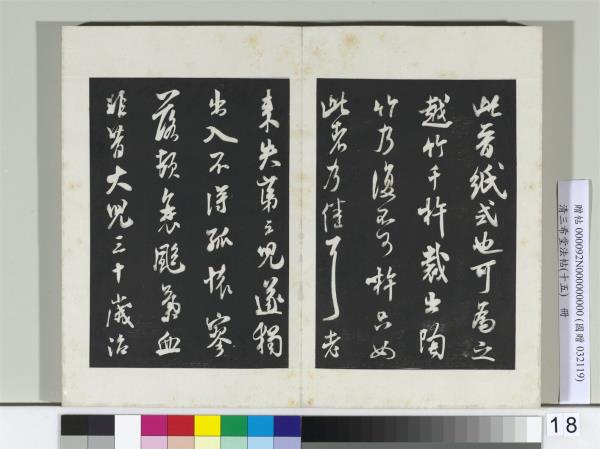 此晉紙式也可為之
越竹千杵裁出陶
竹乃復不可杵只如
此者乃佳耳老
來失第三兒遂獨
出入不得孤懷寥
落頓衰飈氣血
非昔大兒三十歲治
贈帖 000092N000000000 (國贈 032119)
清三希堂法帖(十五) 冊
18